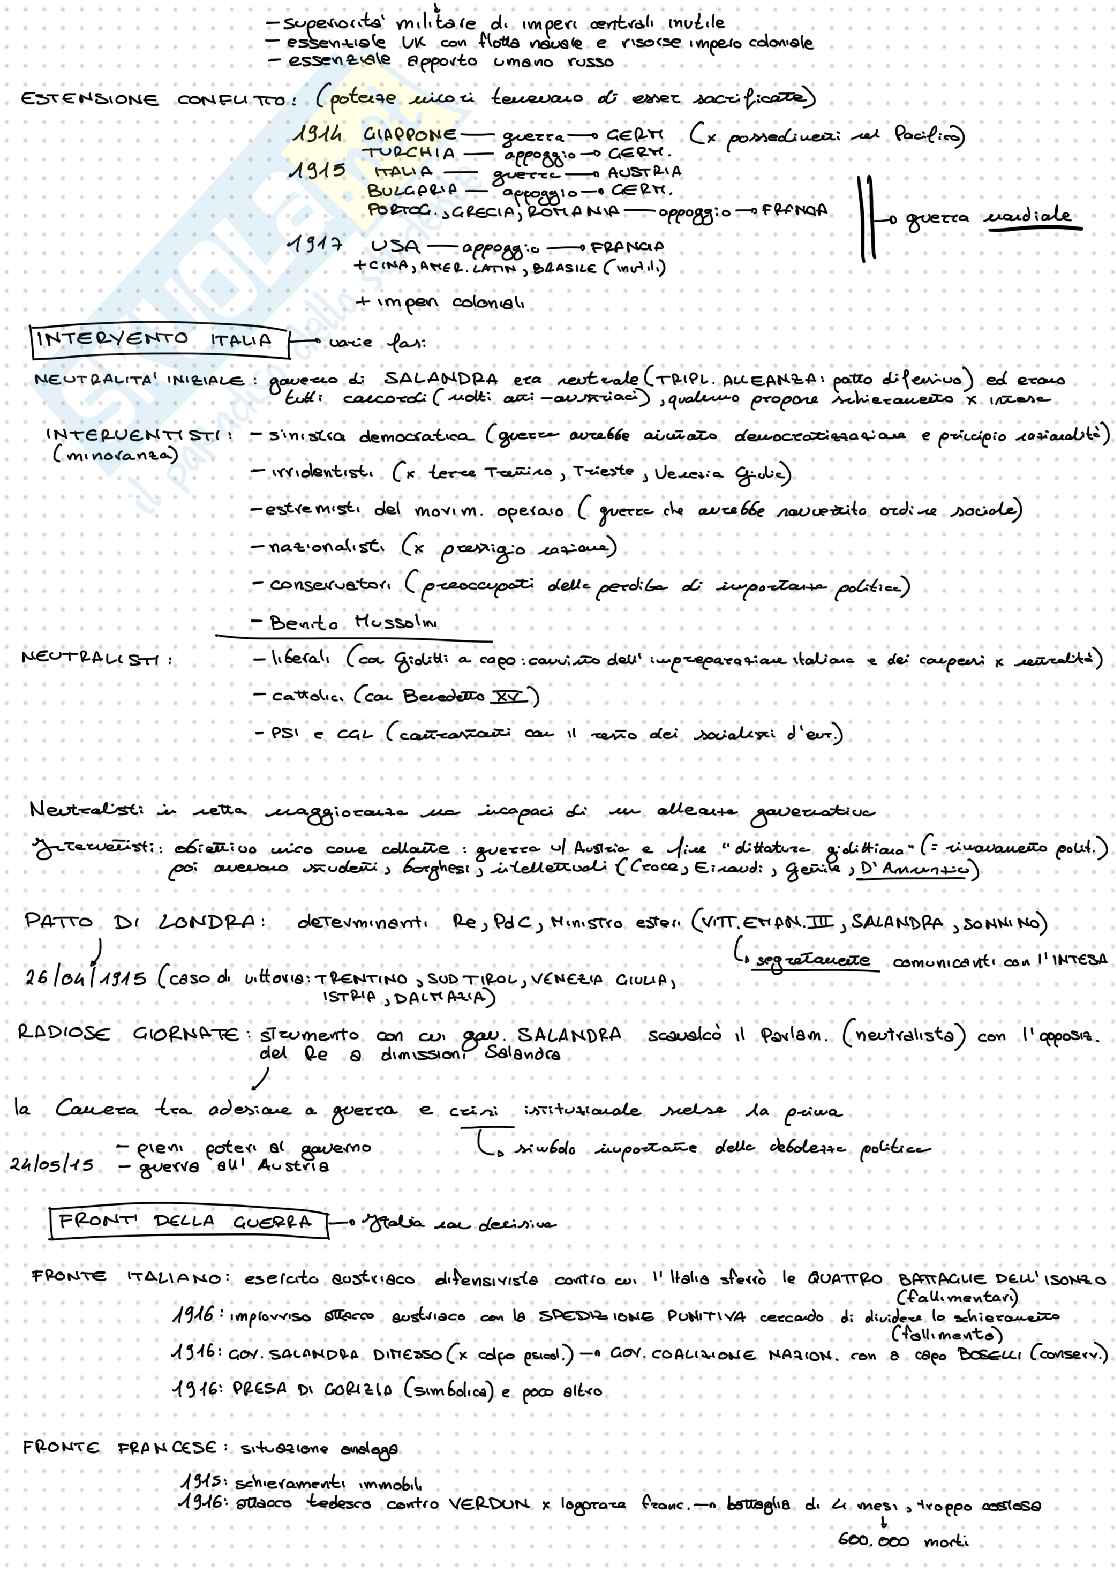 - superiorita' militare di imperi centrali inutile
- essenziale UK con flotta navale e risorse impero coloniale
- essenziale apporto umano russo
ESTENSIONE CONFLITTO: (potenze minori temevano di esser sacrificate)
1914 GIAPPONE — guerra → GERM (x possedimenti nel Pacifico)
TURCHIA — appoggio → GERM.
1915 ITALIA — guerra → AUSTRIA
BULGARIA — appoggio → GERM.
PORTOG., GRECIA, ROMANIA — appoggio → FRANCIA
→ guerra mondiale
1917 USA — appoggio → FRANCIA
+ CINA, AMER. LATIN, BRASILE (inutili)
+ imperi coloniali
INTERVENTO ITALIA → varie fasi
NEUTRALITA' INIZIALE: governo di SALANDRA era neutrale (TRIPL. ALLEANZA: patto difensivo) ed erano
tutti concordi (molti anti-austriaci), qualcuno propone schieramento x intesa
INTERVENTISTI: - sinistra democratica (guerra avrebbe aiutato democratizzazione e principio nazionalità)
(minoranza)
- irridentisti (x terre Trentino, Trieste, Venezia Giulia)
- estremisti del movim. operaio (guerra che avrebbe rovesciato ordine sociale)
- nazionalisti (x prestigio nazione)
- conservatori (preoccupati della perdita di importanza politica)
- Benito Mussolini
NEUTRALISTI: - liberali (con Giolitti a capo: convinto dell'impreparazione italiana e dei compensi x neutralità)
- cattolici (con Benedetto XV)
- PSI e CGL (contrastanti con il resto dei socialisti d'eur.)
Neutralisti in netta maggioranza ma incapaci di un alleanza governativa
Interventisti: obiettivo unico come collante: guerra v/ Austria e fine "dittatura giolittiana" (= rinnovamento polit.)
poi avevano studenti, borghesi, intellettuali (Croce, Einaudi, Gentile, D'Annunzio)
PATTO DI LONDRA: determinanti Re, PdC, Ministro esteri (VITT. EMAN. III, SALANDRA, SONNINO)
segretamente comunicanti con l'INTESA
26/04/1915 (caso di vittoria: TRENTINO, SUD TIROL, VENEZIA GIULIA,
ISTRIA, DALMAZIA)
RADIOSE GIORNATE: strumento con cui gov. SALANDRA scavalcò il Parlam. (neutralista) con l'opposiz.
del Re a dimissioni Salandra
la Camera tra adesione a guerra e crisi istituzionale scelse la prima
- pieni poteri al governo
simbolo importante della debolezza politica
24/05/15 - guerra all'Austria
FRONTI DELLA GUERRA → Italia non decisiva
FRONTE ITALIANO: esercito austriaco difensivista contro cui l'Italia sferrò le QUATTRO BATTAGLIE DELL'ISONZO
(fallimentari)
1916: improvviso attacco austriaco con la SPEDIZIONE PUNITIVA cercando di dividere lo schieramento
(fallimento)
1916: GOV. SALANDRA DIMESSO (x colpo psicol.) → GOV. COALIZIONE NAZION. con a capo BOSELLI (conserv.)
1916: PRESA DI GORIZIA (simbolica) e poco altro
FRONTE FRANCESE: situazione analoga
1915: schieramenti immobili
1916: attacco tedesco contro VERDUN x logorare franc. → battaglia di 4 mesi, troppo costosa
600.000 morti